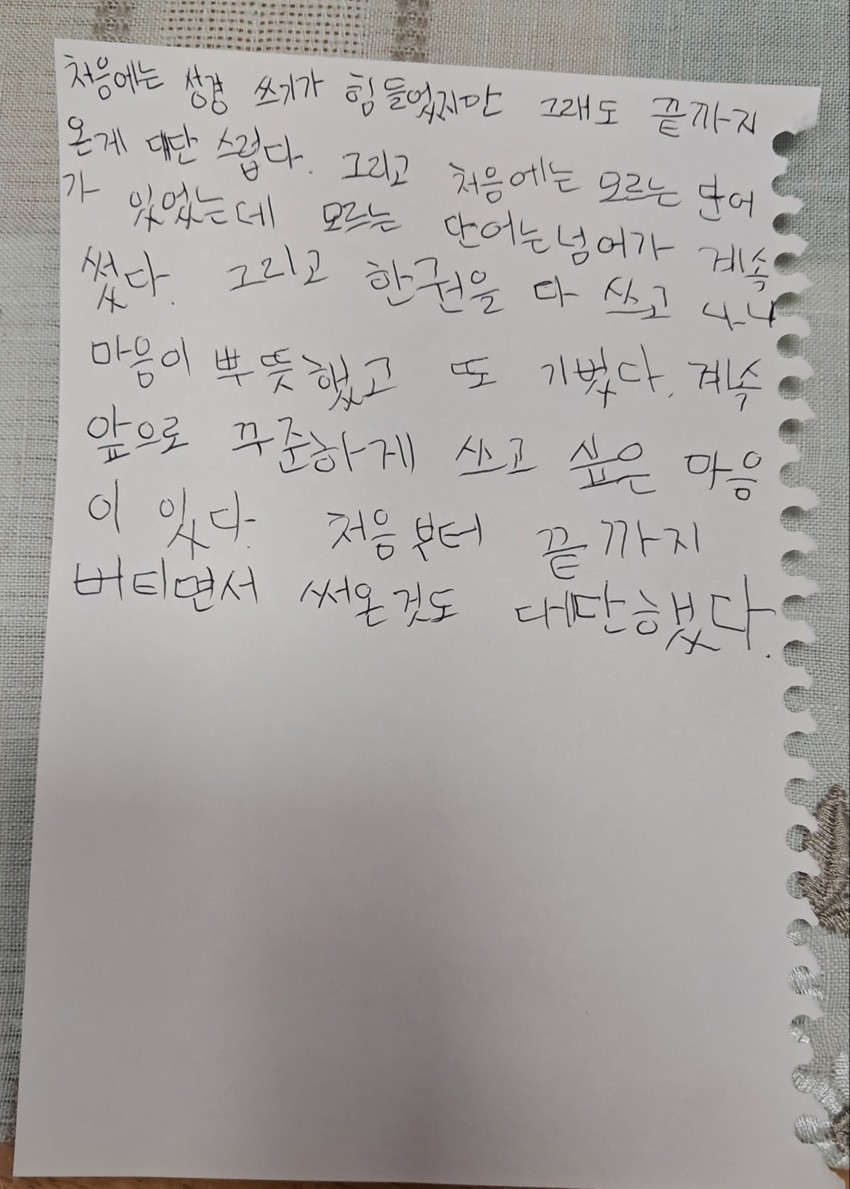 처음에는 성경 쓰기가 힘들었지만 그래도 끝까지
온게 대단 스럽다. 그리고 처음에는 모르는 단어
가 있었는데 모르는 단어는넘어가 계속
썼다. 그리고 한권을 다 쓰고 나니
마음이 뿌뜻했고 또 기뻤다. 계속
앞으로 꾸준하게 쓰고 싶은 마음
이 있다. 처음부터 끝까지
버티면서 써온것도 대단했다.